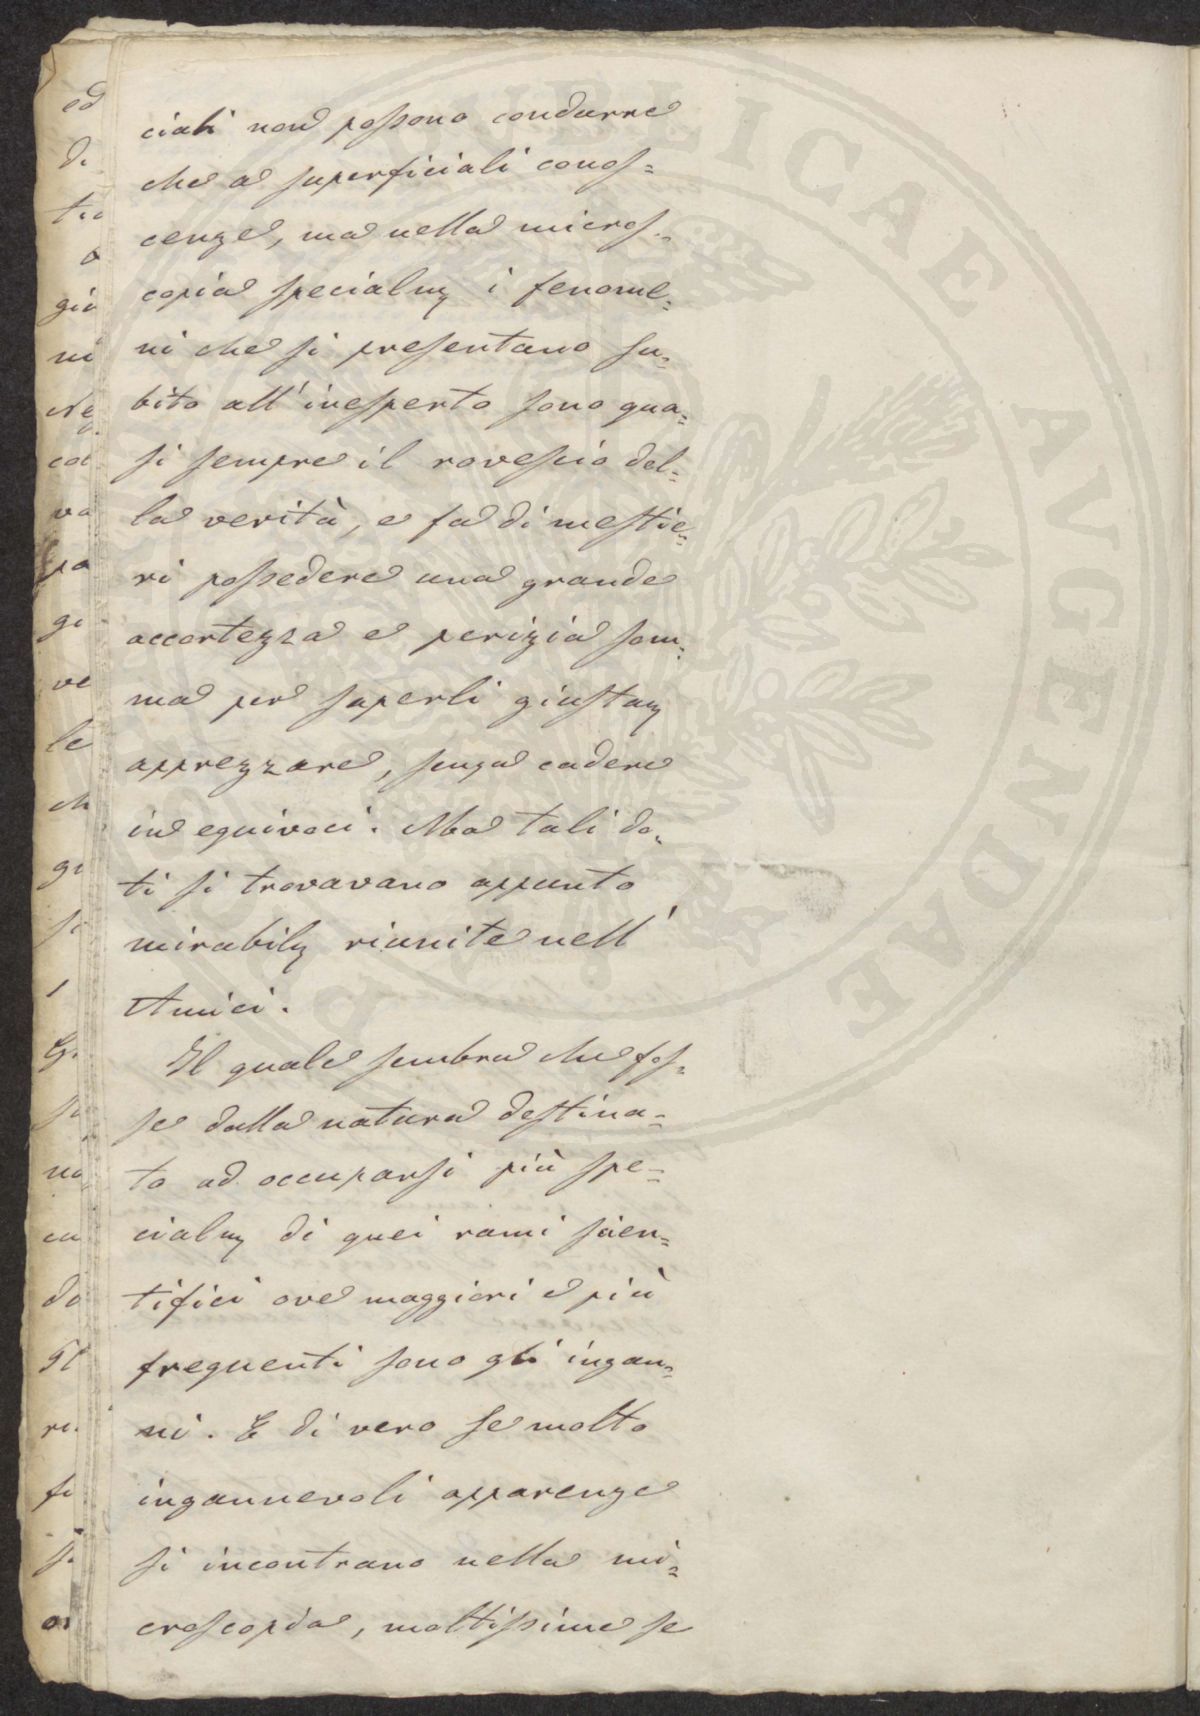 ciali non possono condurre
che a superficiali conos=
cenze, ma nella micros=
copia specialmᵉ i fenome=
ni che si presentano su=
bito all'inesperto sono qua=
si sempre il rovescio del=
la verità, e fa di mestie=
ri possedere una grande
accortezza e perizia som=
ma per saperli giustamᵉ
apprezzare, senza cadere
in equivoci. Ma tali do=
ti si trovavano appunto
mirabilmᵉ riunite nell'
Amici.
Il quale sembra che fos=
se dalla natura destina=
to ad occuparsi più spe=
cialmᵉ di quei rami scien=
tifici ove maggiori e più
frequenti sono gli ingan=
ni. E di vero se molto
ingannevoli apparenze
si incontrano nella mi=
croscopia, moltissime se
PUBLICAE AVGENDAE